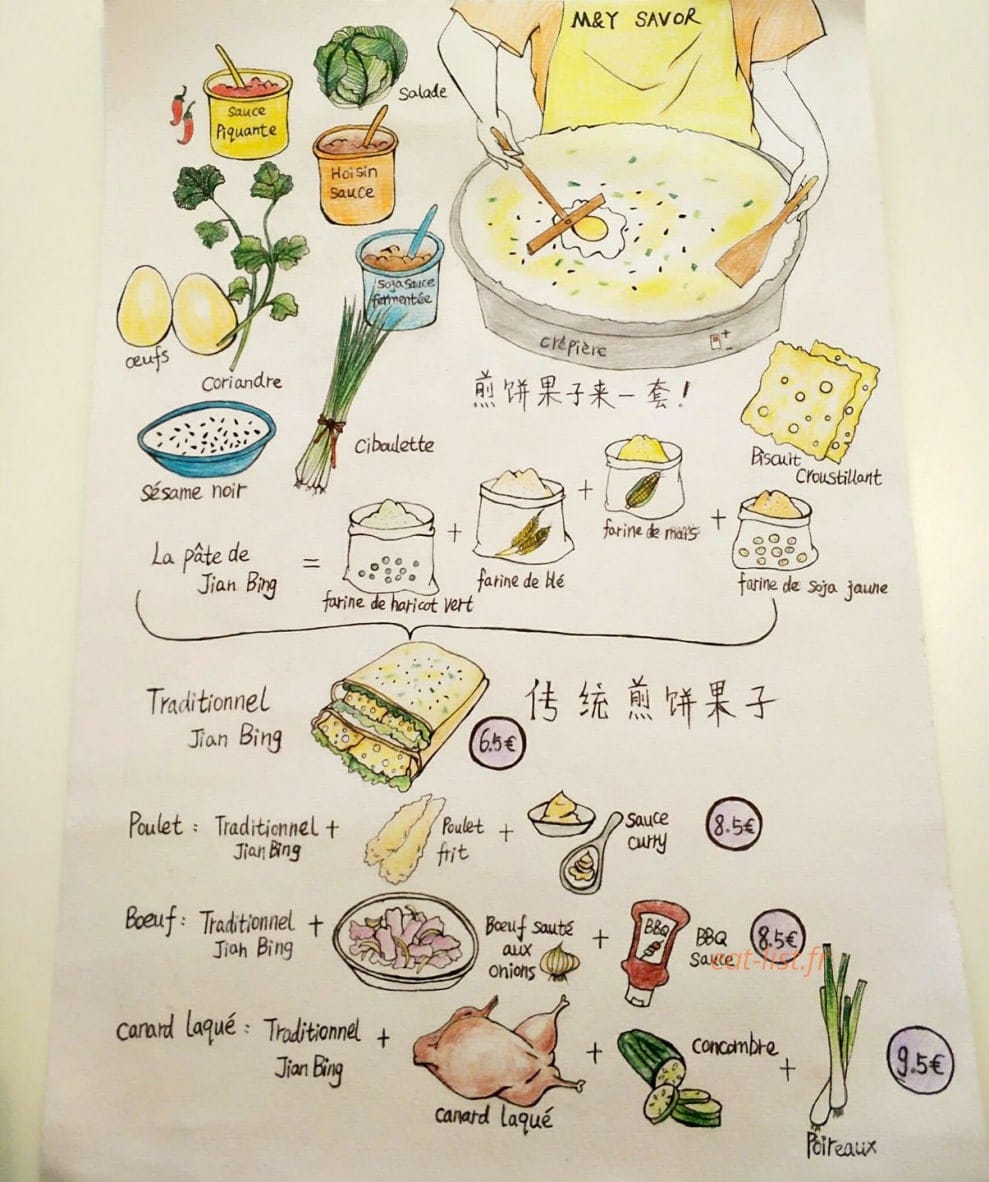 M&Y SAVOR
Sauce
Piquante
Salade
Hoisin
sauce
Soja sauce
fermentée
œufs
Coriandre
crêpière
煎饼果子来一套!
Ciboulette
Biscuit
Croustillant
Sésame noir
La pâte de
Jian Bing
=
+
+
+
farine de haricot vert
farine de blé
farine de maïs
farine de soja jaune
Traditionnel
Jian Bing
传统煎饼果子
6.5€
Poulet : Traditionnel +
Jian Bing
Poulet
frit
+
sauce
curry
8.5€
Bœuf : Traditionnel +
Jian Bing
Bœuf sauté
aux
onions
+
BBQ
BBQ
sauce
8.5€
eat-list.fr
canard laqué : Traditionnel +
Jian Bing
canard laqué
+
concombre
+
Poireaux
9.5€